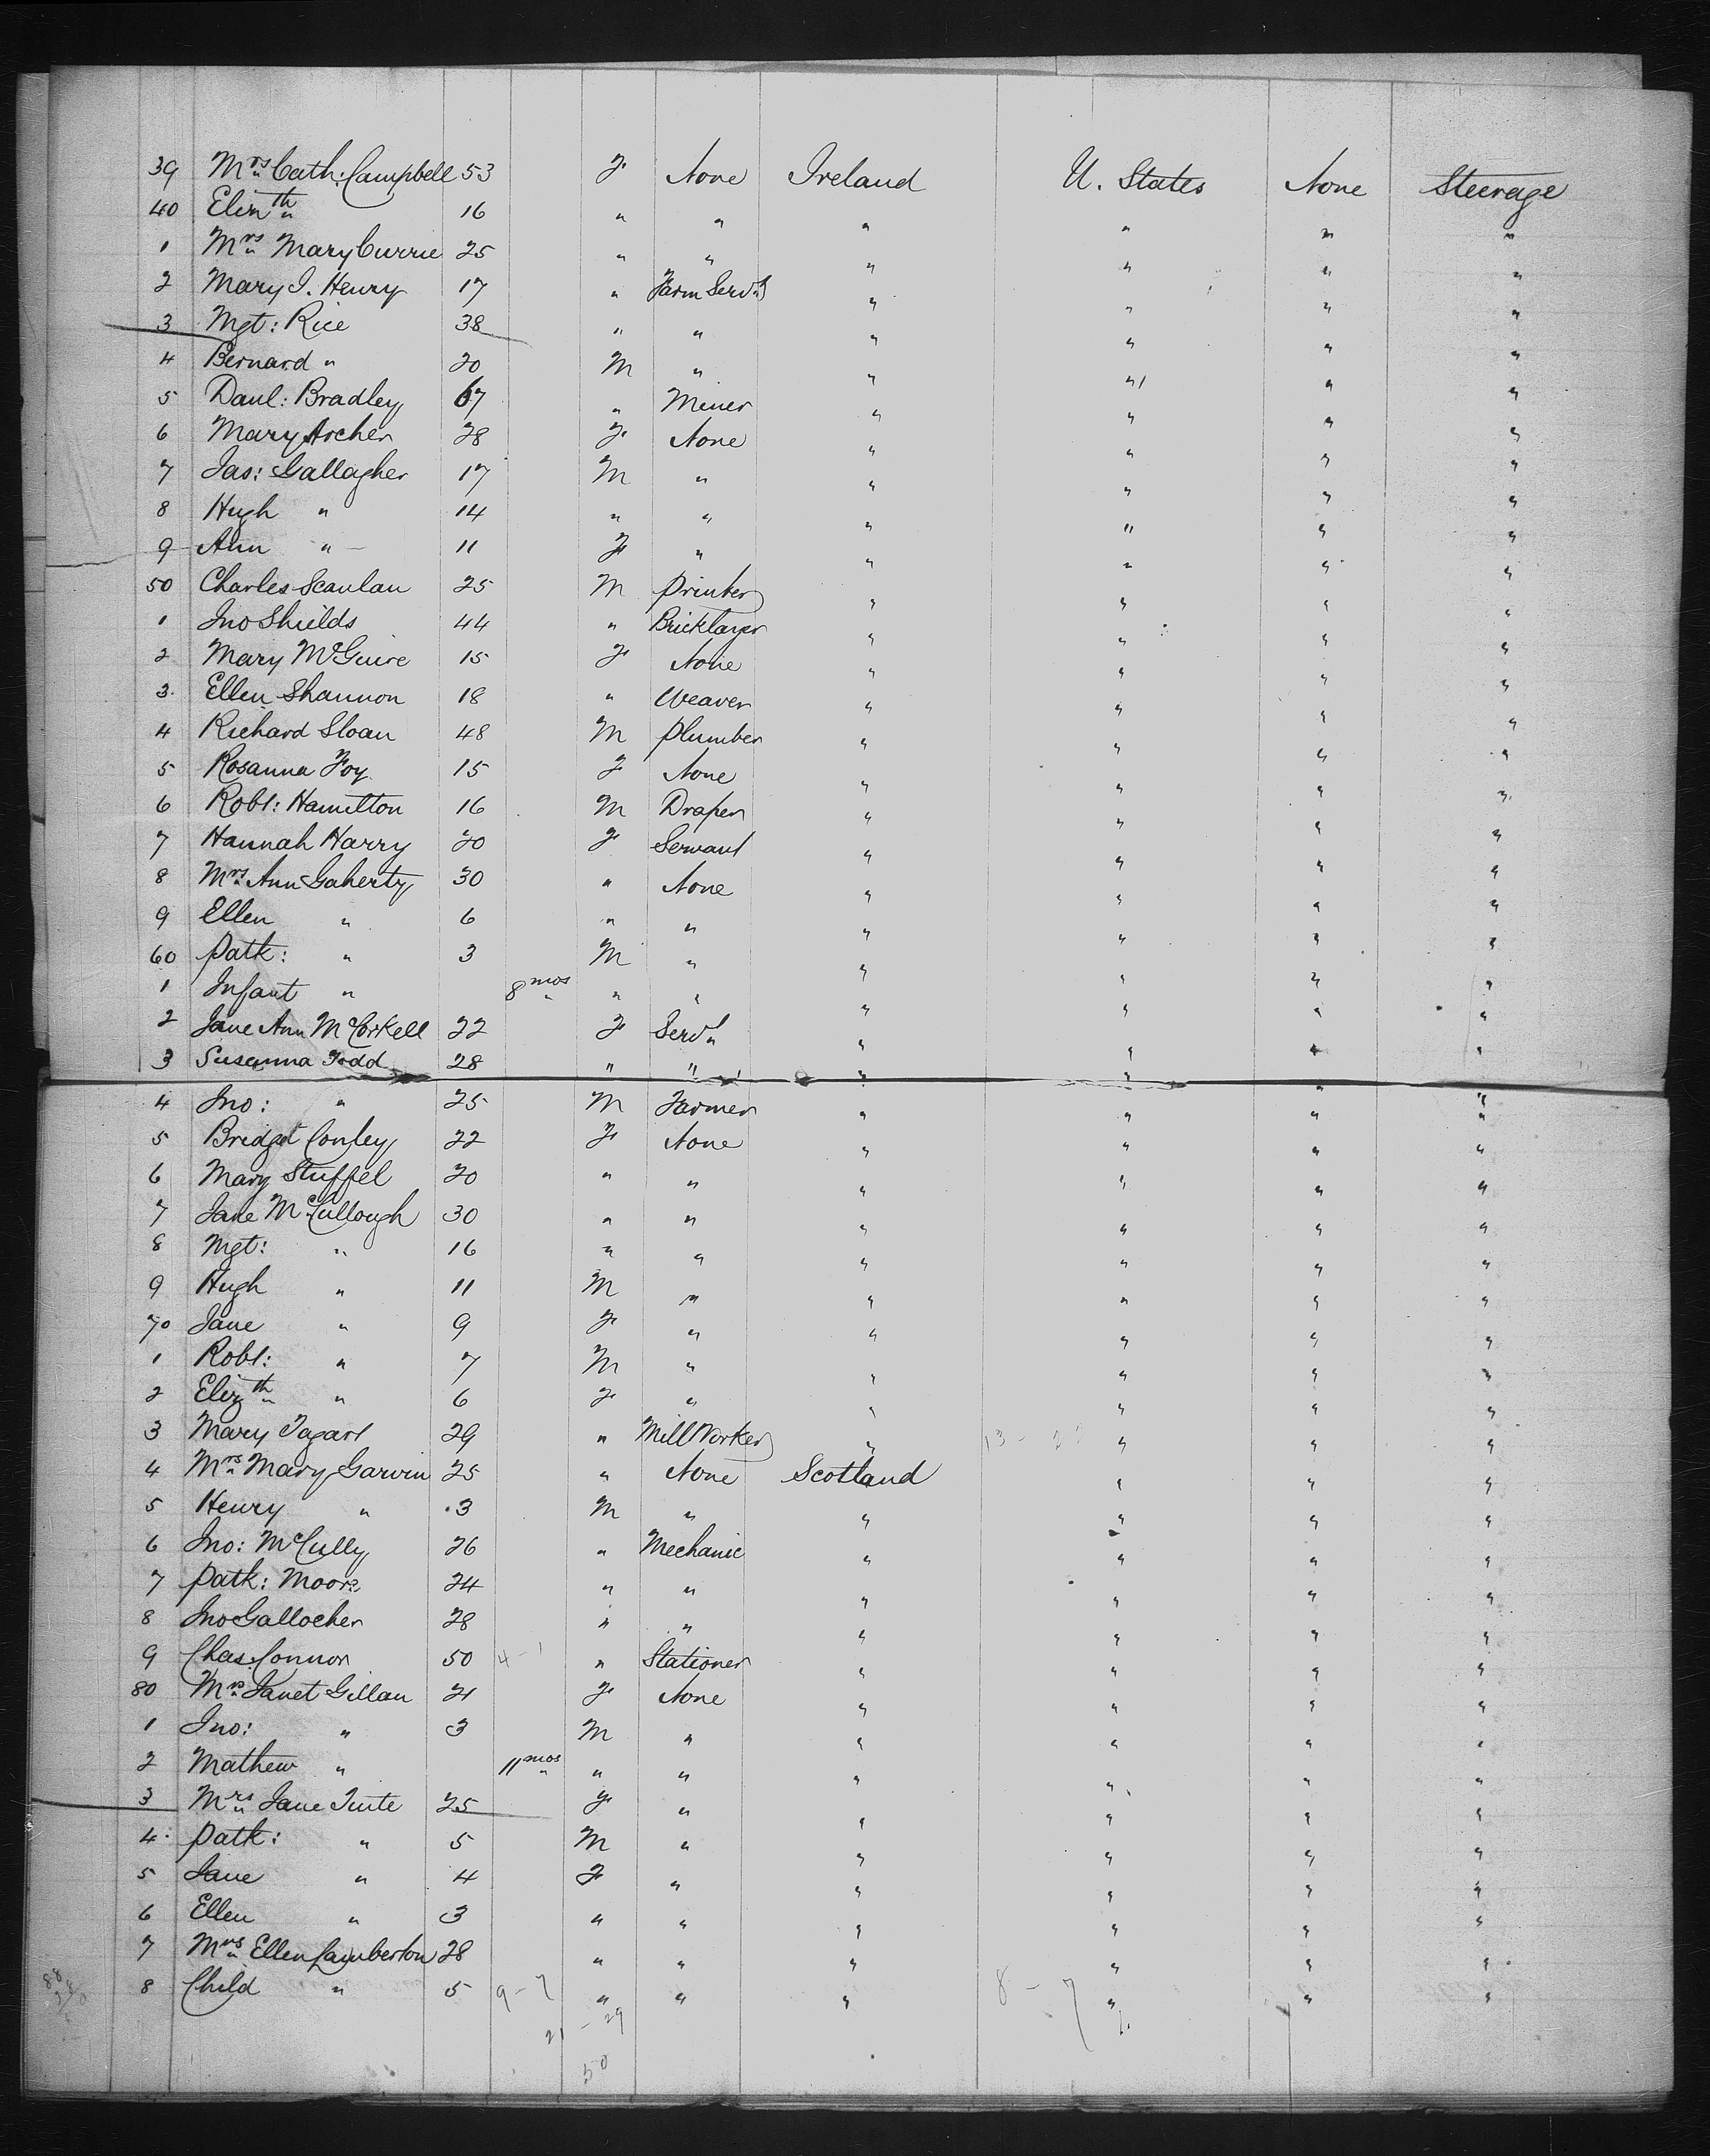 39 Mrs Cath: Campbell 53 F None Ireland U. States None Steerage
40 Elizth " 16 " " " " " "
1 Mrs Mary Currie 25 " " " " " "
2 Mary J. Henry 17 " Farm Servt " " " "
3 Mgt: Rice 38 " " " " " "
4 Bernard " 20 M " " " " "
5 Danl: Bradley 67 " Miner " " " "
6 Mary Archer 28 F None " " " "
7 Jas: Gallagher 17 M " " " " "
8 Hugh " 14 " " " " " "
9 Ann " 11 F " " " " "
50 Charles Scanlan 25 M Printer " " " "
1 Jno Shields 44 " Bricklayer " " " "
2 Mary McGuire 15 F None " " " "
3 Ellen Shannon 18 " Weaver " " " "
4 Richard Sloan 48 M Plumber " " " "
5 Rosanna Foy 15 F None " " " "
6 Robt: Hamilton 16 M Draper " " " "
7 Hannah Harry 20 F Servant " " " "
8 Mrs Ann Gaherty 30 " None " " " "
9 Ellen " 6 " " " " " "
60 Patk: " 3 M " " " " "
1 Infant " 8 mos " " " " " "
2 Jane Ann McCorkell 22 F Servt " " " "
3 Susanna Todd 28 " " " " " "
4 Jno: " 25 M Farmer " " " "
5 Bridget Conley 22 F None " " " "
6 Mary Stuffel 20 " " " " " "
7 Jane McCullough 30 " " " " " "
8 Mgt: " 16 " " " " " "
9 Hugh " 11 M " " " " "
70 Jane " 9 F " " " " "
1 Robt: " 7 M " " " " "
2 Elizth " 6 F " " " " "
3 Mary Tagart 29 " Mill Worker " " " "
4 Mrs Mary Garvin 25 " None Scotland " " "
5 Henry " 3 M " " " " "
6 Jno: McCully 26 " Mechanic " " " "
7 Patk: Moore 24 " " " " " "
8 Jno Gallocher 28 " " " " " "
9 Chas: Connor 50 4-1 " Stationer " " " "
80 Mrs Janet Gillan 21 F None " " " "
1 Jno: " 3 M " " " " "
2 Mathew " 11 mos " " " " " "
3 Mrs Jane Tuite 25 F " " " " "
4 Patk: " 5 M " " " " "
5 Jane " 4 F " " " " "
6 Ellen " 3 " " " " " "
7 Mrs Ellen Lamberton 28 " " " " " "
8 Child " 5 9-7 " " " 8-7 " " "
21-29
50